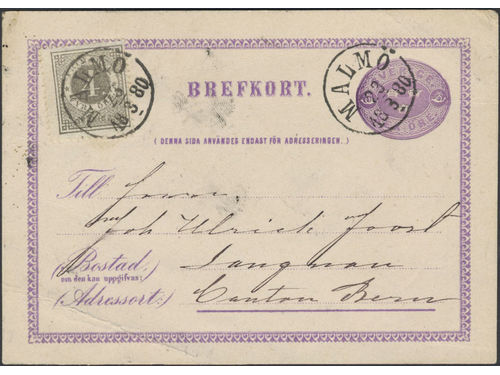 MALMÖ
23
3
1880
BREFKORT.
MALMÖ
23
3
1880
SVERIGE
ÖRE
( DENNA SIDA ANVÄNDES ENDAST FÖR ADRESSERINGEN. )
Till Herrn
Joh Ulrich Joost
(Bostad,
om den kan uppgifvas:)
Langnau
(Adressort:) Canton Bern